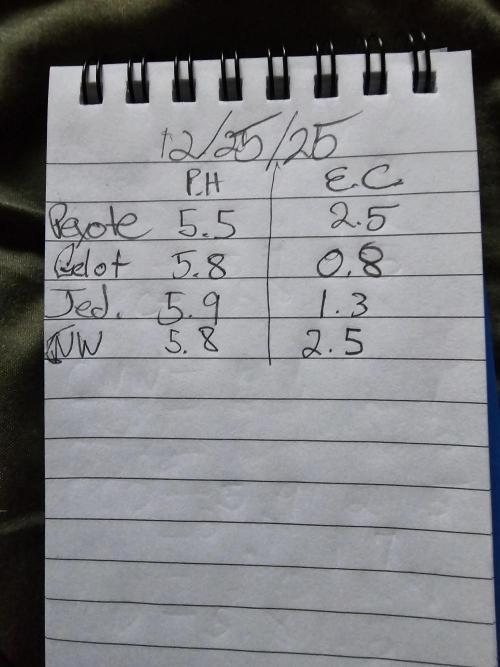 12/25/25
P.H E.C.
Peyote 5.5 2.5
5.8 0.8
Jed. 5.9 1.3
NW 5.8 2.5